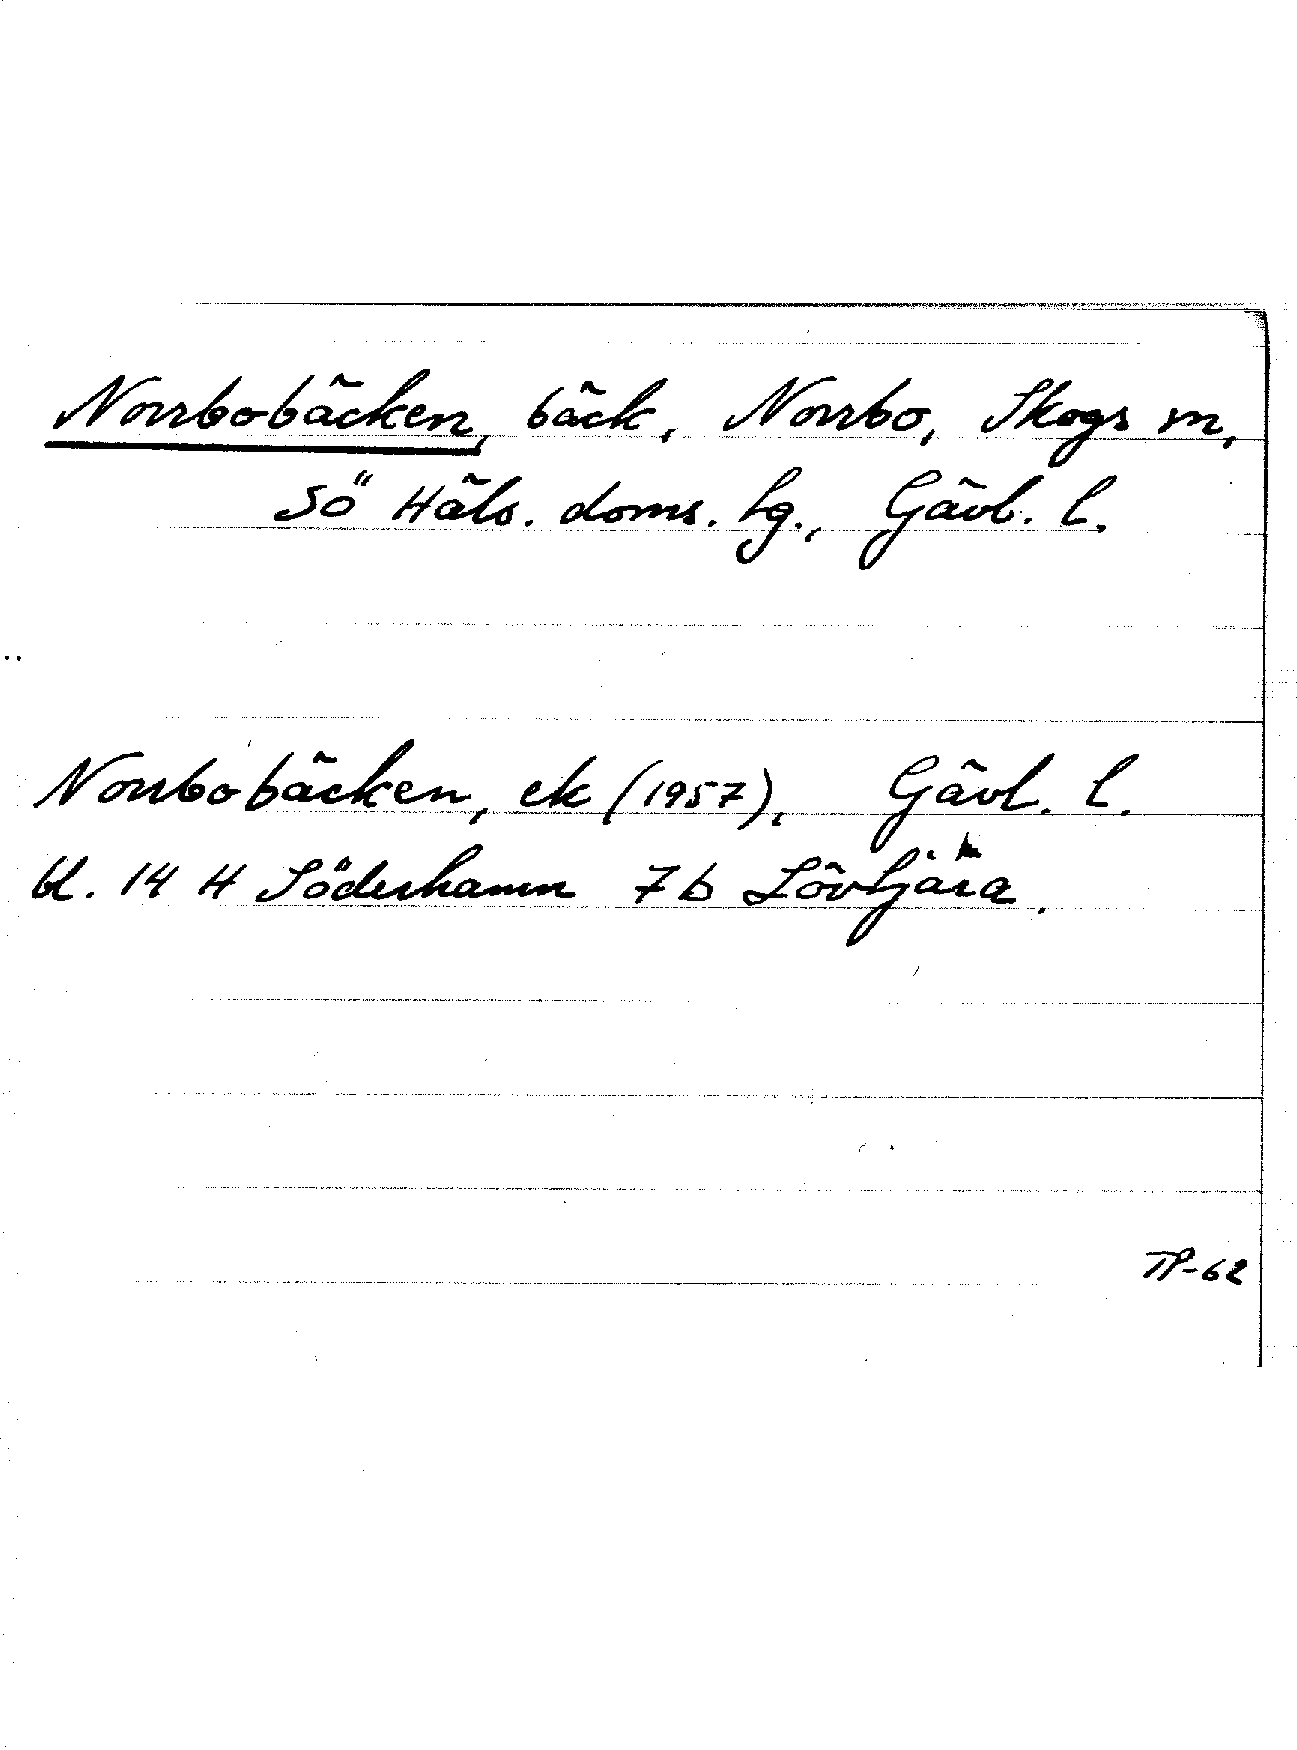 Norrbobäcken, bäck, Norrbo, Skogs sn,
Sö Häls. doms. lg., Gävl. l.
Norrbobäcken, ek (1957), Gävl. l.
bl. 14 H Söderhamn 7 b Lövtjära.
TP-62